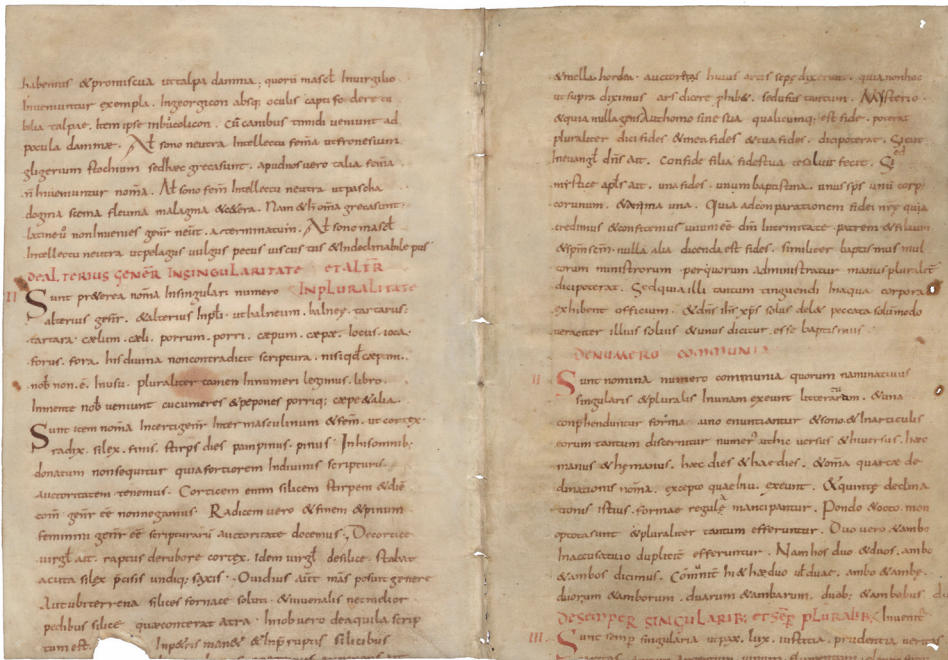 habemus & promiscua ut talpa damma; quorū mascł Inuirgilio
Inueniuntur exempla. Ingeorgicon absq; oculis capti fodere cu
bilia talpae. Item ipse Inbucolicon. Cū canibus timidi ueniunt ad
pocula dammae. At sono neutra Intellectu femīa ut
sono femī Intellectu neutra ut pascha
dogma scema fleuma malagma & c&era. Nam & h omīa grecasunt
latine ū noninuenies genꝛ neut. a terminatum. At sono mascł
Intellectu neutra ut pelagus uulgus pecus uiscus tus & Indeclinabile pus
DE ALTERIUS GENER INSINGULARITATE ET ALTR
INPLURALITATE
II Sunt pr&erea nomīa Insingulari numero
alterius genꝛ. & alterius Inplɩ. ut balneum. balney. tartarus.
tartara. caelum. caeli. porrum. porri. caepum. caepae. locus. loca.
forus. fora. his diuina noncontradicit scriptura. nisi qđ caepum.
nob non. ē. Inusu. pluraliter tamen Innumeri legimus. libro.
Inmente nob ueniunt cucumeres & pepones porriq; caepe & alia.
Sunt item nomīa Incerti genꝛ Inter masculinum & femī. ut cortex
radix. silex. finis. stirps dies pampinus. pinus. Inhisomnib;
donatum nonsequitur quia fortiorem Indiuinis scripturis
auctoritatem tenemus. Corticem enim silicem stirpem & diē
com genꝛ ēē nonnegamus. Radicem uero & finem & pinum
feminini genꝛ ēē scripturarū auctoritate docemus. De cortice
uirgł ait. raptus derubore cortex. Idem uirgł desilice. Stabat
acuta silex p̄cisis undiq; saxis. Ouidius aut mas posuit genere
Aut ubi terrena silices fornace soluti. & iuuenalis necminor
pedibus silice quaeconterat atra. Innouero deaquila scrip
tum est. Inp&ris man& & Inpruptis silicibus
& mella. hordea. auctores huius artis sepe dixerunt. quia nonhoc
ut supra diximus ars dicere phib&. sed usus tantum. Mysterio
& quia nulla gens aut homo sine sua qualicumq; est fide. poterat
pluraliter dici fides & mea fides & tua fides. dici poterat. Sicut
Ineuangł dn̄s ait. Confide filia fides tua te saluā fecit. Sed
mystice apłs ait. una fides. unum baptisma. unus sp̄s unū corp.
cotorum. & anima una. Quia adconparationem fidei nr̄ę quia
credimus & confitemur unum ēē dm̄ Intrinitate. patrem & filium
& spm̄ scm̄. nulla alia dicenda est fides. similiter baptismus mul
torum ministrorum per quorum administratur manus pluralit
dici poterat. Sed quia illi tantum tinguendi Inaqua corpora
exhibent officium. & dn̄s ih̄s xp̄s solus del& peccata solummodo
ueraciter illius solius & unus dicitur esse baptismus
DENUMERO COMMUNIA
II Sunt nomina numero communia quorum nominatiuus
singularis & pluralis Inunam exeunt litterarum. & una
conphenduntur forma. uno enuntiantur & sono & Inarticulis
eorum tantum discernitur numer. ut hic uersus & hiuersus. haec
manus & haemanus. haec dies & haedies. & omīa quartae de
clinationis nomīa. excepto quae Inu. exeunt. & quintę declina
tionis istius formae regulę mancipantur. Pondo & octo. non
optotasunt & pluraliter tantum efferuntur. Duo uero & ambo
Inaccusatiuo duplicit efferuntur. Nam hos duo & duos. ambo
& ambos dicimus. Communit hi & haeduo uł duae. ambo & ambę.
duorum & amborum. duarum & ambarum. duob; & ambobus.
DESEMPER SINGULARIB; ET SĒP PLURALIB; Inuenit
III Sunt semp singularia ut pax. lux. iustitia. prudentia ueritas